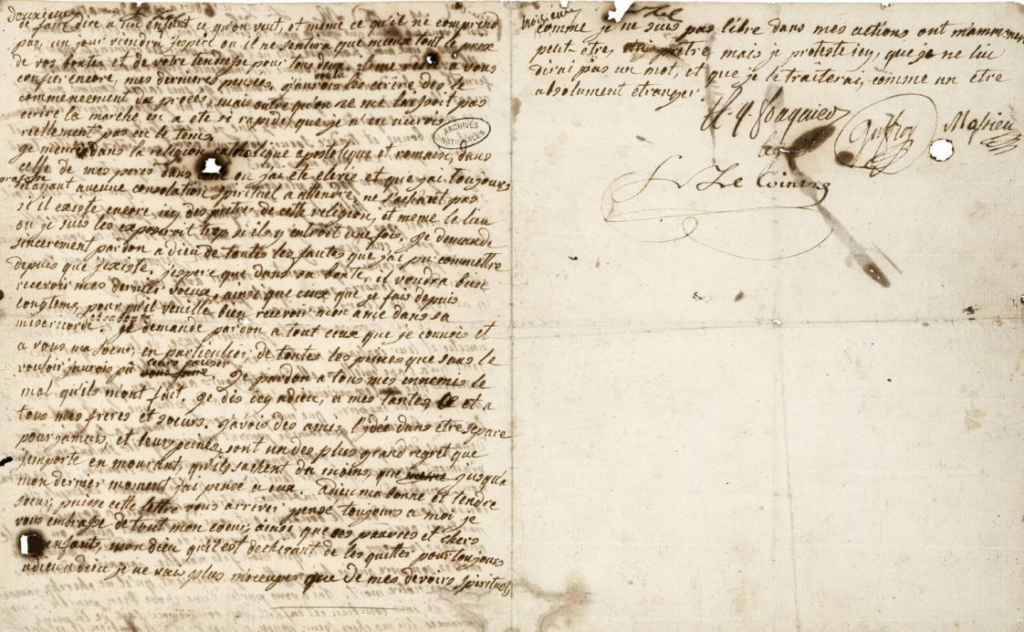 de faire dire a un enfant ce qu'on veut, et même ce qu'il ne comprend
pas, un jour viendra j'espere ou il ne sentira que mieux tout le prix
de vos bontés et de votre tendresse pour tous deux. il me reste a vous
confier encore, mes dernieres pensées, j'aurois voulu les ecrire dès le
commencement du procès, mais outre qu'on ne me laissoit pas
ecrire la marche en a été si rapide, que je n'en aurois
reellement pas eu le tems.
je meurs dans la religion catholique apostolique et romaine, dans
celle de mes peres dans ou j'ai été elevée et que j'ai toujours
professée
n'ayant aucune consolation spirituel a attendre, ne sachant pas
s'il existe encore icy des pretres de cette religion, et meme le lieu
ou je suis les exposeroit trop si ils y entroit une fois. je demande
sincerement pardon a dieu de toutes les fautes que j'ai pu commettre
depuis que j'existe. j'espere que dans sa bonté il voudra bien
recevoir mes derniers voeux, ainsi que ceux que je fais depuis
longtems, pour qu'il veuille bien recevoir mon ame dans sa
misericorde et sa bonté. je demande pardon a tout ceux que je connois et
a vous ma soeur, en particulier, de toutes les peines que sans le
vouloir j'aurois pu vous causer. je pardonne a tous mes ennemis le
mal qu'ils m'ont fait. je dis icy adieu, a mes tantes et a
tous mes freres et soeurs. j'avois des amis l'idée dans etre separé
pour jamais, et leurs peines, sont un des plus grand regret que
j'emporte en mourant, qu'ils sachent du moins, que jusqu'a
mon dernier moment j'ai pensé a eux. adieu ma bonne et tendre
soeur, puisse cette lettre vous arriver, pensé toujours a moi je
vous embrasse de tout mon coeur, ainsi que ces pauvres et chers
enfants, mon dieu qu'il est dechirant de les quitter pour toujours
adieu adieu je ne vais plus m'occuper que de mes devoirs spirituel
ARCHIVES
NATIONALES
comme je ne suis pas libre dans mes actions ont m'amenera
peut etre, un pretre mais je proteste icy, que je ne lui
dirai pas un mot, et que je le traiterai comme un etre
absolument etranger.
Guffroy
Massieu
L Le Cointre